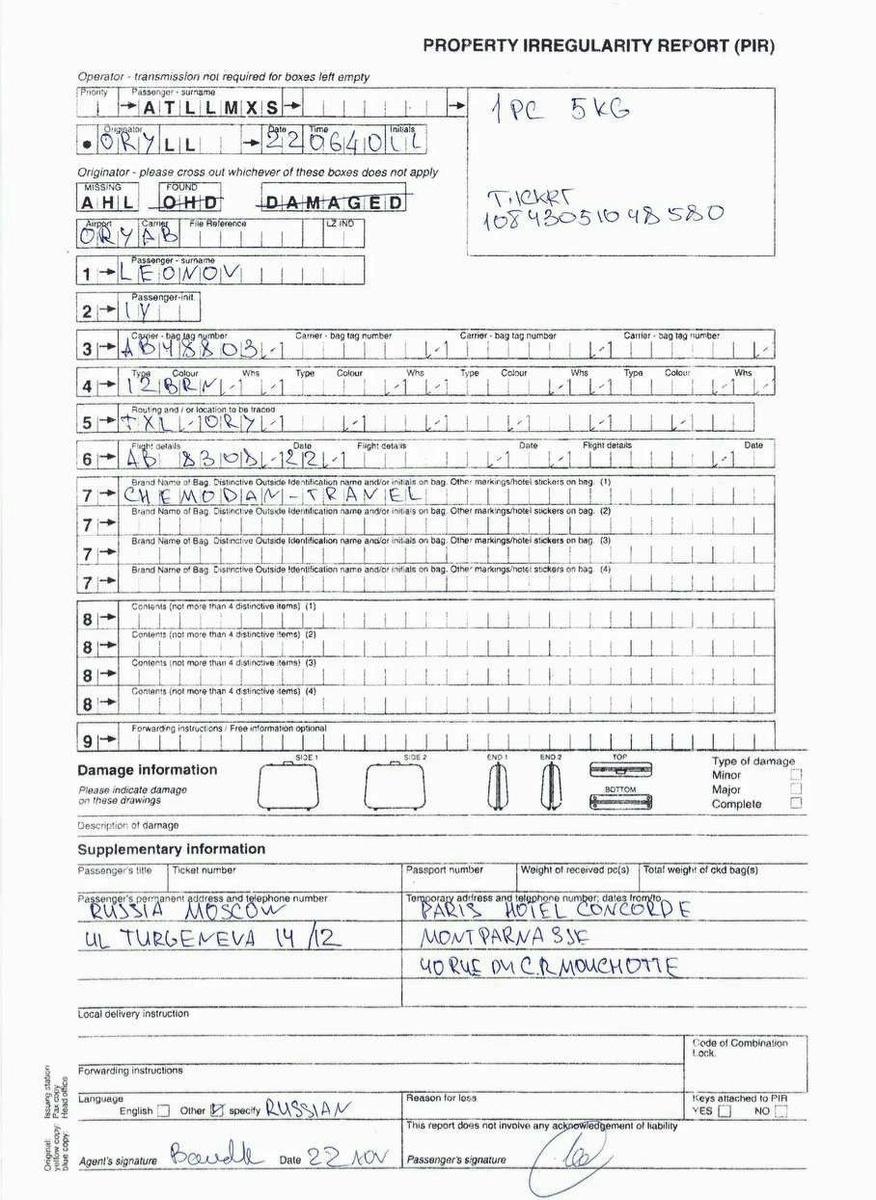 PROPERTY IRREGULARITY REPORT (PIR)
Operator - transmission not required for boxes left empty
Priority Passenger - surname
ATLLMXS
1PC 5KG
Originator Date Time Initials
ORYLL 220640 LL
Originator - please cross out whichever of these boxes does not apply
MISSING FOUND
AHL OHD DAMAGED
TICKRT
Airport Carrier File Reference LZ IND
ORYAB
Passenger - surname
1 LEONOV
Passenger-init.
2 IV
Carrier - bag tag number Carrier - bag tag number Carrier - bag tag number Carrier - bag tag number
3 AB48803
Type Colour Whs Type Colour Whs Type Colour Whs Type Colour Whs
4 12BRN
Routing and / or location to be traced
5 TXL-ORY
Flight details Date Flight details Date Flight details Date
6 AB 8308 22
Brand Name of Bag. Distinctive Outside Identification name and/or initials on bag. Other markings/hotel stickers on bag. (1)
7 CHEMODAN-TRAVEL
Brand Name of Bag. Distinctive Outside Identification name and/or initials on bag. Other markings/hotel stickers on bag. (2)
7
Brand Name of Bag. Distinctive Outside Identification name and/or initials on bag. Other markings/hotel stickers on bag. (3)
7
Brand Name of Bag. Distinctive Outside Identification name and/or initials on bag. Other markings/hotel stickers on bag. (4)
7
Contents (not more than 4 distinctive items) (1)
8
Contents (not more than 4 distinctive items) (2)
8
Contents (not more than 4 distinctive items) (3)
8
Contents (not more than 4 distinctive items) (4)
8
Forwarding instructions / Free information optional
9
SIDE 1 SIDE 2 END 1 END 2 TOP
Damage information
Please indicate damage
on these drawings
BOTTOM
Type of damage
Minor
Major
Complete
Description of damage
Supplementary information
Passenger's title Ticket number Passport number Weight of received pc(s) Total weight of ckd bag(s)
Passenger's permanent address and telephone number Temporary address and telephone number; dates from/to
RUSSIA MOSCOW PARIS HOTEL CONCORDE
UL TURGENEVA 14/12 MONTPARNASSE
40 RUE DU C.R MOUCHOTTE
Local delivery instruction
Code of Combination
Lock.
Forwarding instructions
Language Reason for loss Keys attached to PIR
English Other specify RUSSIAN YES NO
This report does not involve any acknowledgement of liability
Agent's signature Date 22 NOV Passenger's signature
Original: Issuing station
yellow copy: Pax copy
blue copy: Head office